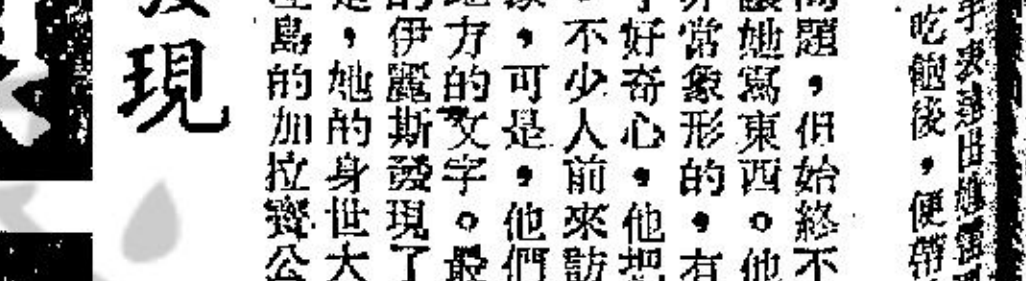 吃飽後，便帶
問題，但始終不
讓她寫東西。他
非常象形的，有
好奇心，他把
，不少人前來訪
，可是，他們
地方的文字。最
的伊麗斯發現了
是，她的身世大
島的加拉寶公
現